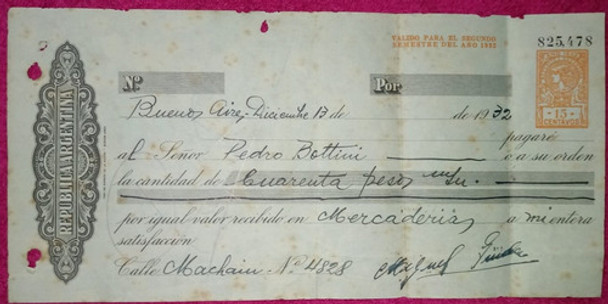 VALIDO PARA EL SEGUNDO
SEMESTRE DEL AÑO 1932
825,478
REPUBLICA ARGENTINA
Nº Por
15
CENTAVOS
Buenos Aires, Diciembre 13 de de 1932
pagaré
al Señor Pedro Bottini o a su orden
la cantidad de Cuarenta pesos m/n
por igual valor recibido en Mercaderias a mi entera
satisfacción
Calle Machain Nº 4828 Miguel